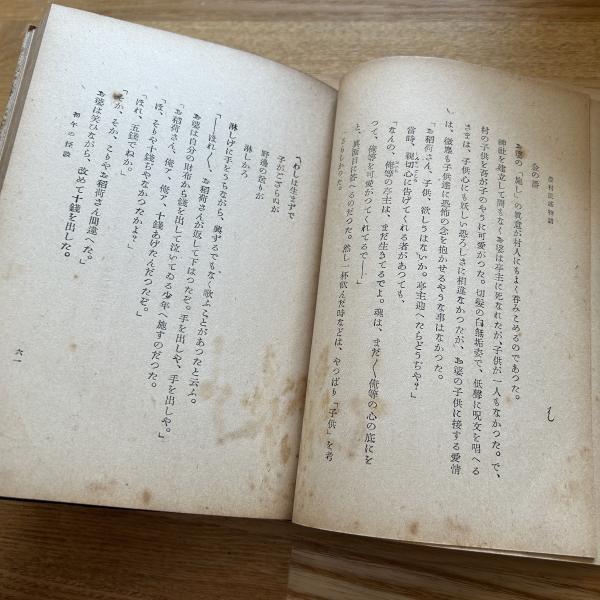 農村民謠物語
金の器
お婆の「施し」の眞意が村人にもよく呑みこめるのであつた。
神社を建立して間もなくお婆は亭主に死なれたが、子供が一人もなかつた。で、
村の子供を吾が子のやうに可愛がつた。切髮の白無垢姿で、低聲に呪文を唱へる
さまは、子供心にも妖しい恐ろしさに相違なかつたが、お婆の子供に接する愛情
は、微塵も子供達に恐怖の念を抱かせるやうな事はなかつた。
「お稻荷さん、子供、欲しうはないか。亭主迎へたらどうぢや?」
當時、親切に告げてくれる者があつても、
「なんの、俺等の亭主は、まだ生きてるでよ。魂は、まだ〳〵俺等の心の底にを
つて、俺等を可愛がつてくれてるで――」
と、眞面目に答へるのだつた。然し一杯飮んだ時などは、やつぱり「子供」を考
へわしは生まずで
子がござらぬが
野邊の送りが
淋しかろ
淋しげに手をうちながら、興ずるでもなく歌ふことがあつたと云ふ。
「――ほれ〳〵、お稻荷さんが返して下はつたぞ。手を出しや、手を出しや。」
お婆は自分の財布から錢を出して泣いてゐる少年へ施すのだつた。
「お稻荷さん、俺ァ、十錢あげたんだつたぞ。」
「ほ、そりや十錢ぢやなかつたかよ?」
「ほれ、五錢でねか。」
「そか、そか、こりやお稻荷さん間違へた。」
お婆は笑ひながら、改めて十錢を出した。
初午の怪談
六一